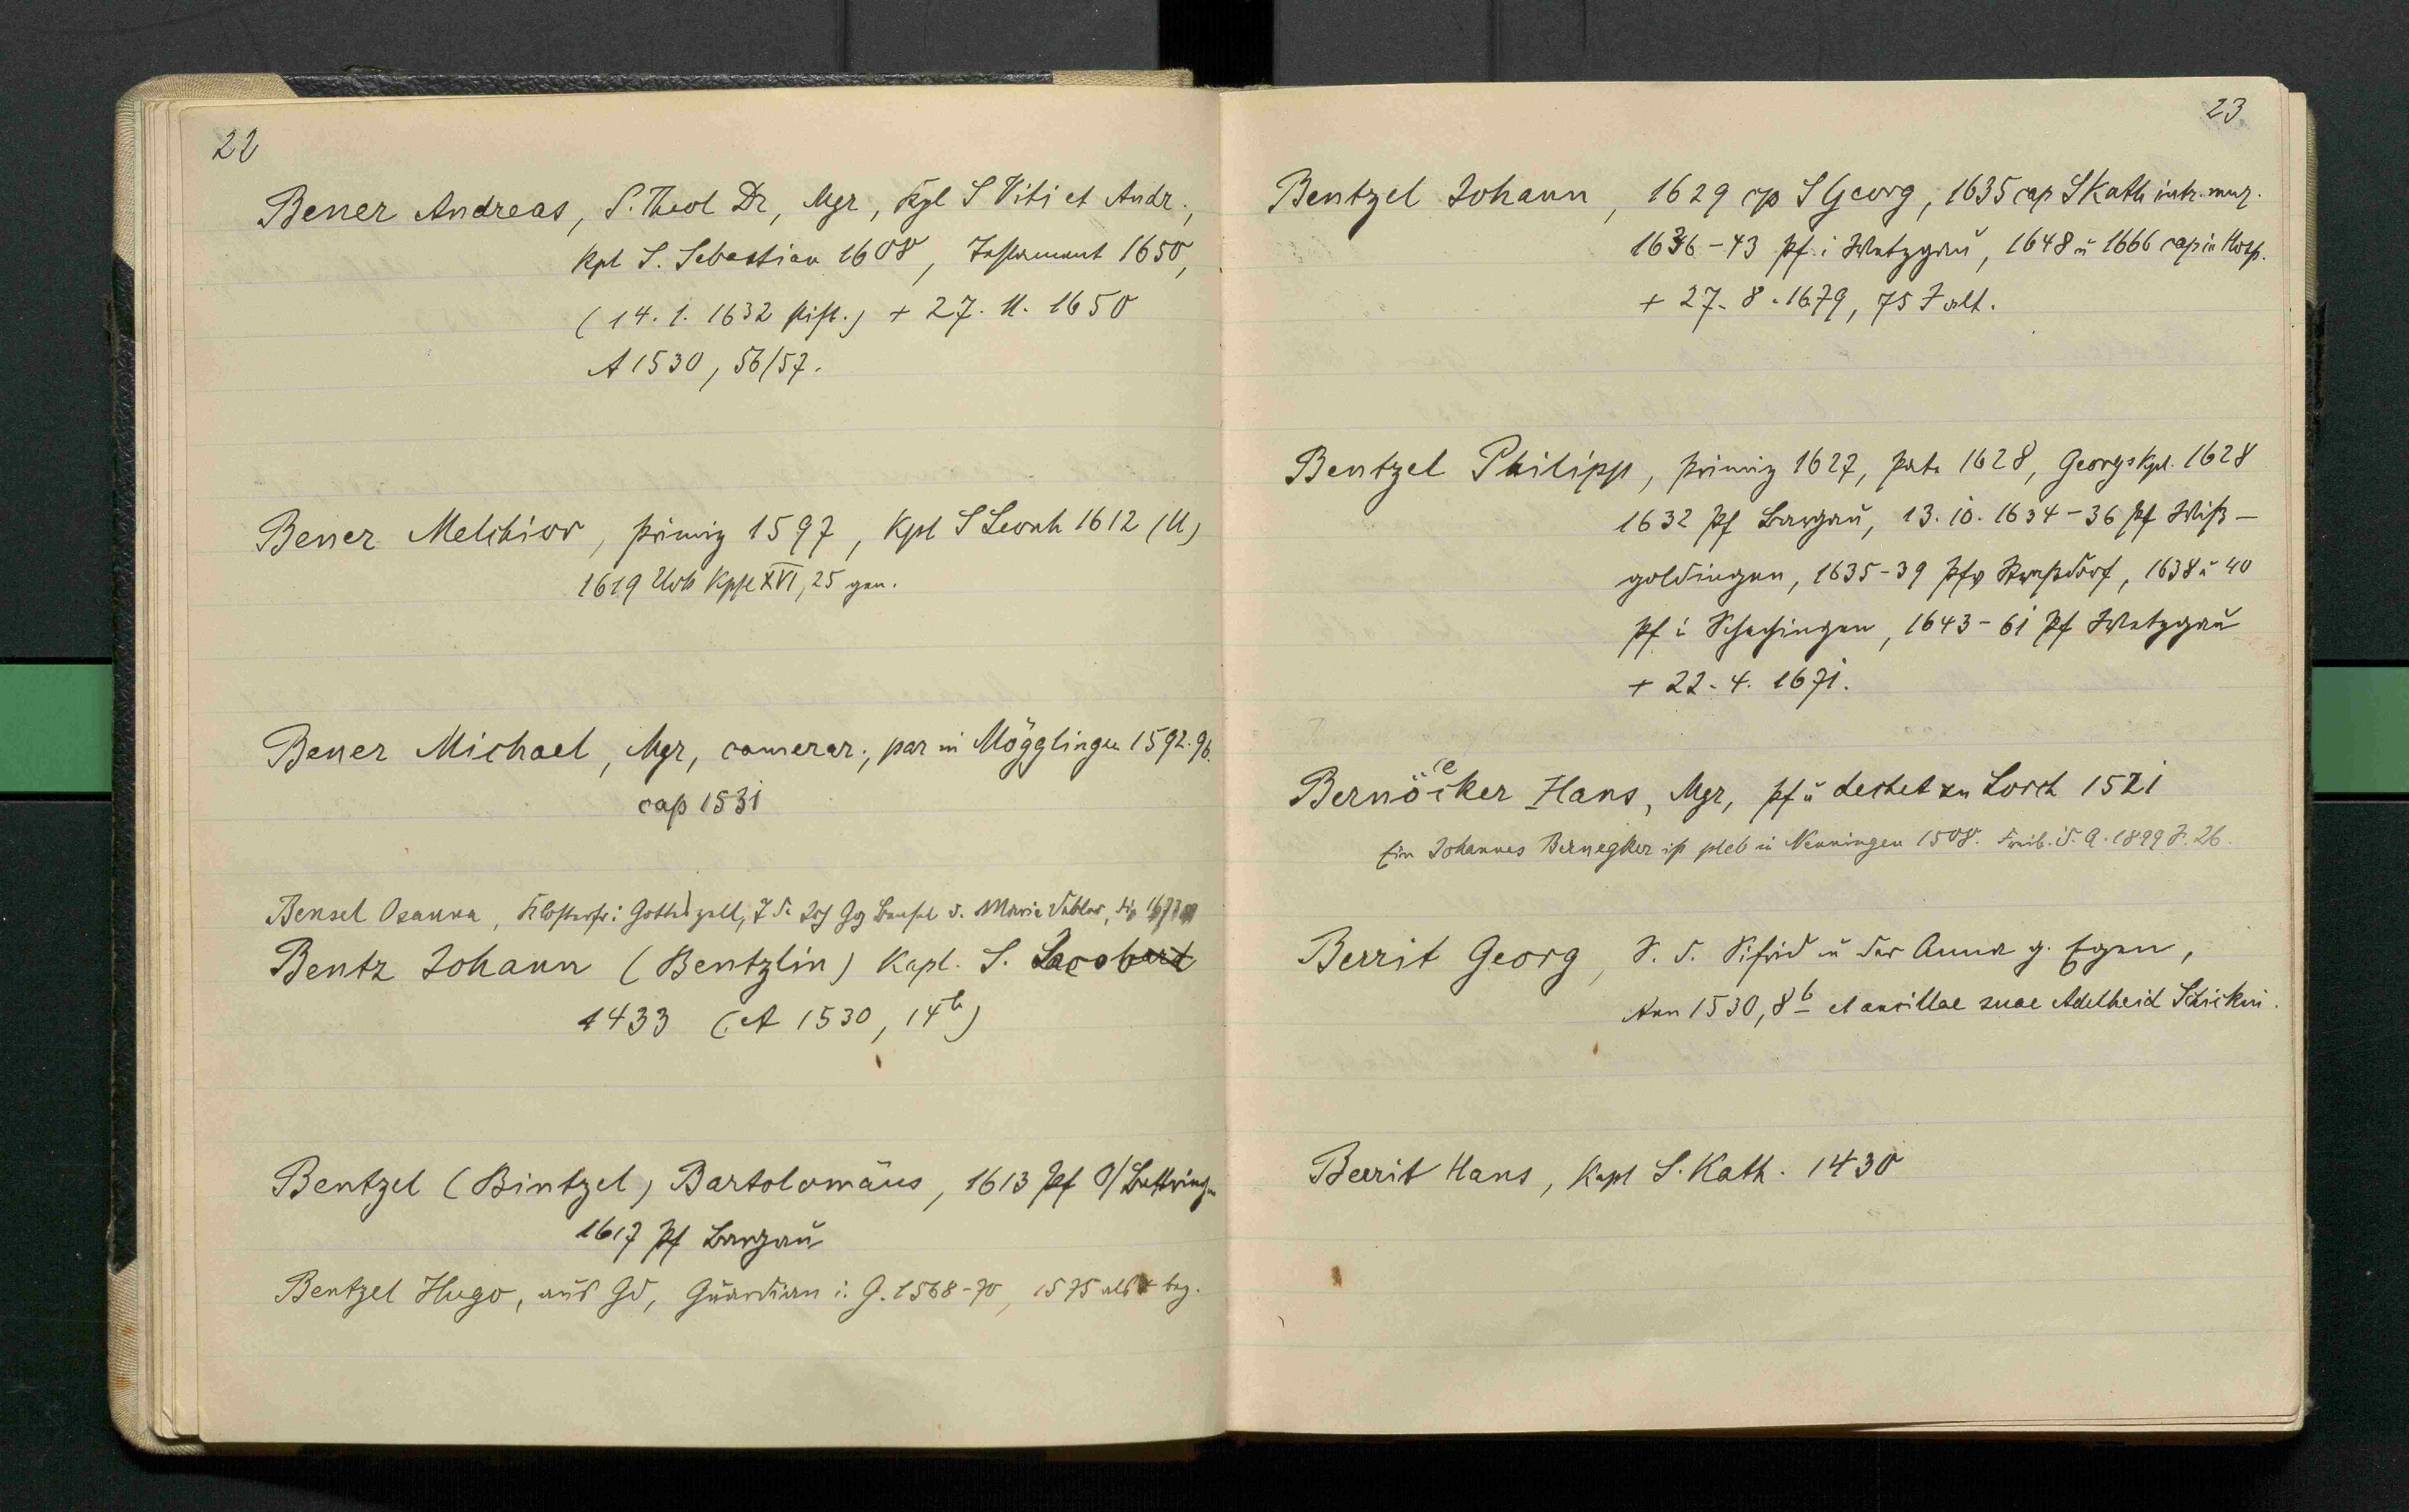 22
Bener Andreas, S. Theol Dr, Mgr, Kpl S Viti et Andr.,
Kpl S. Sebastian 1608, Testament 1650,
(14. 1. 1632 stift.) + 27. 11. 1650
A 1530, 56/57.
Bener Melchior, primiz 1597, Kpl S Leonh 1612 (U)
1619 Urk Kpfl XVI, 25 gen.
Bener Michael, Mgr, camerar., par in Mögglingen 1592. 96.
cap 1531
Bensel Osanna, Klosterfr i Gotteszell, T d. Jos Gg Bensel u. Maria
Bentz Johann (Bentzlin) Kapl. S.
1433 (A 1530, 14b)
Bentzel (Bintzel) Bartolomäus, 1613 Pf O/Bettringen
1617 Pf Bargau
Bentzel Hugo, aus Gd, Guardian i. G. 1568-70, 1575 als + bez.
23
Bentzel Johann, 1629 cp S Georg, 1635 cap S Kath intr. mur.
1636-43 Pf i Wetzgau, 1648 u 1666 cap in Hosp.
+ 27. 8. 1679, 75 J alt.
Bentzel Philipp, primiz 1627, Pate 1628, Georgskpl. 1628
1632 Pf Bargau, 13. 10. 1634-36 Pf Wiß-
goldingen, 1635-39 Pfv Straßdorf, 1638 u 40
Pf i Schechingen, 1643-61 Pf Wetzgau
+ 22. 4. 1671.
Bernöcker Hans, Mgr, Pf u dechet zu Lorch 1521
Ein Johannes Bernegker ist pleb in Nenningen 1508. Freib. D. A. 1899 S. 26.
Berrit Georg, S. d. Sifrid u der Anna g. Egen,
Ann 1530, 8b et ancillae suae Adelheid Schickin.
Berrit Hans, Kapl S. Kath. 1430